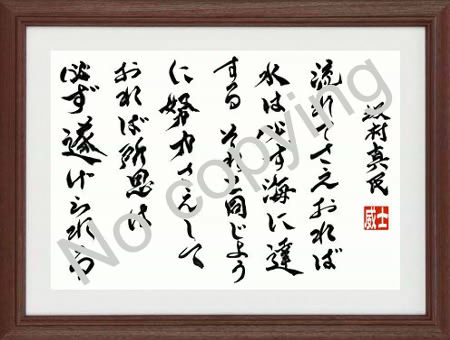 坂村真民
流れてさえおれば
水は必ず海に達
する それと同じよう
に努力さえして
おれば所思は
必ず遂げられる
士威
No copying